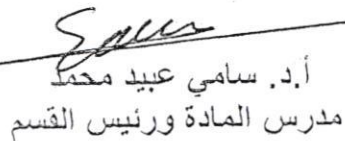 أ.د. سامي عبيد محمد
مدرس المادة ورئيس القسم